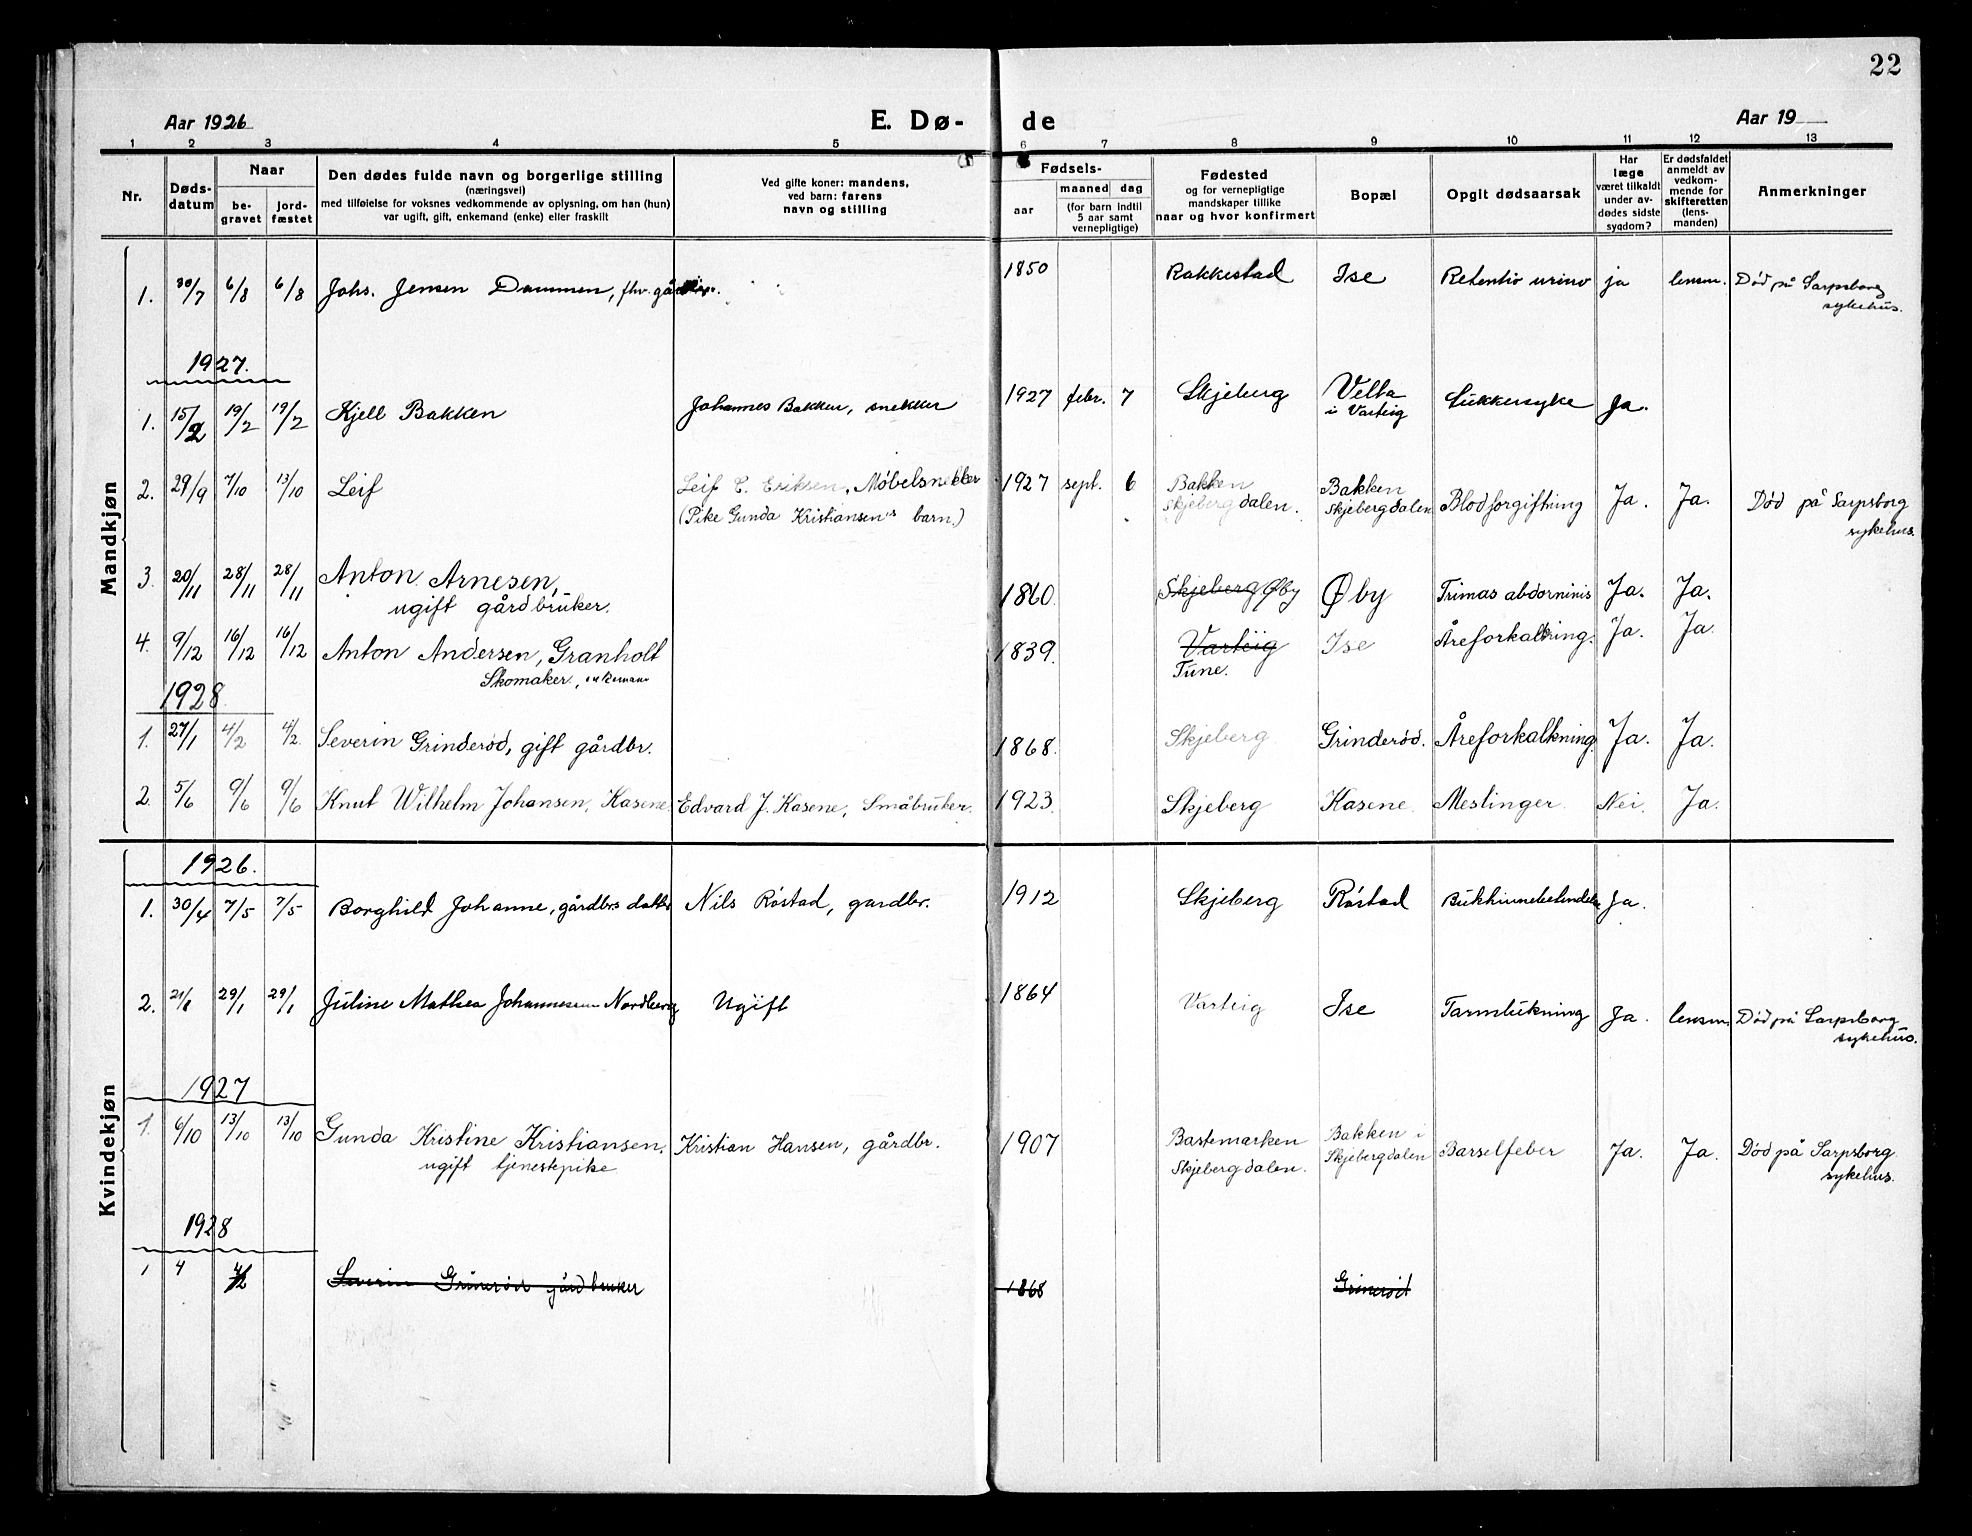 22
Aar 1926 E. Dø- de Aar 19
1 2 3 4 5 6 7 8 9 10 11 12 13
Nr.
Døds-
datum
Naar
be-
gravet
jord-
fæstet
Den dødes fulde navn og borgerlige stilling
(næringsvei)
med tilføielse for voksnes vedkommende av oplysning, om han (hun)
var ugift, gift, enkemand (enke) eller fraskilt
Ved gifte koner: mandens,
ved barn: farens
navn og stilling
Fødsels-
aar
maaned dag
(for barn indtil
5 aar samt
vernepligtige)
Fødested
og for vernepligtige
mandskaper tillike
naar og hvor konfirmert
Bopæl
Opgit dødsaarsak
Har
læge
været tilkaldt
under av-
dødes sidste
sygdom?
Er dødsfaldet
anmeldt av
vedkom-
mende for
skifteretten
(lens-
manden)
Anmerkninger
Mandkjøn
1. 30/7 6/8 6/8 Johs. Jensen Dammen, fhv. 1850 Rakkestad Ise Retentio urino ja lensm. Død på Sarpsborg
sykehus.
1927.
1. 15/2 19/2 19/2 Kjell Bakken Johannes Bakken, snekker 1927 febr. 7 Skjeberg Velta
i Varteig Sukkersyke Ja.
2. 29/9 7/10 13/10 Leif Leif C. Eriksen, Møbelsnekker 1927 sept. 6 Bakken Bakken
(Pike Gunda Kristiansen's barn.) Skjebergdalen. Skjebergdalen Blodforgiftning Ja. Ja. Død på Sarpsborg
sykehus.
3. 20/11 28/11 28/11 Anton Arnesen, 1860. Skjeberg Øby Øby Trimas abdominis Ja. Ja.
ugift gårdbruker.
4. 9/12 16/12 16/12 Anton Andersen, Granholt 1839. Varteig Ise Åreforkalkning. Ja. Ja
Skomaker, enkemann Tune.
1928.
1. 27/1 4/2 4/2. Severin Grinderød, gift gårdbr. 1868. Skjeberg Grinderød. Åreforkalkning. Ja. Ja.
2. 5/6 9/6 9/6 Knut Wilhelm Johansen, Kasene Edvard J. Kasene, Småbruker. 1923. Skjeberg Kasene. Meslinger. Nei. Ja.
Kvindekjøn
1926.
1. 30/4 7/5 7/5 Borghild Johanne, gårdbrs datter Nils Röstad, gardbr. 1912 Skjeberg Röstad Bukhinnebetendelse Ja.
2. 21/1 29/1 29/1 Juline Mathea Johannesen Nordberg Ugift 1864 Varteig Ise Tarmlukning Ja. lensm. Død på Sarpsborg
sykehus.
1927
1. 6/10 13/10 13/10 Gunda Kristine Kristiansen. Kristian Hansen, gårdbr. 1907 Bastemarken Bakken i
ugift tjenestepike Skjebergdalen. Skjebergdalen Barselfeber Ja. Ja. Død på Sarpsborg
sykehus.
1928
1 4 4/2 Severin Grinerød gårdbruker 1868 Grinerød